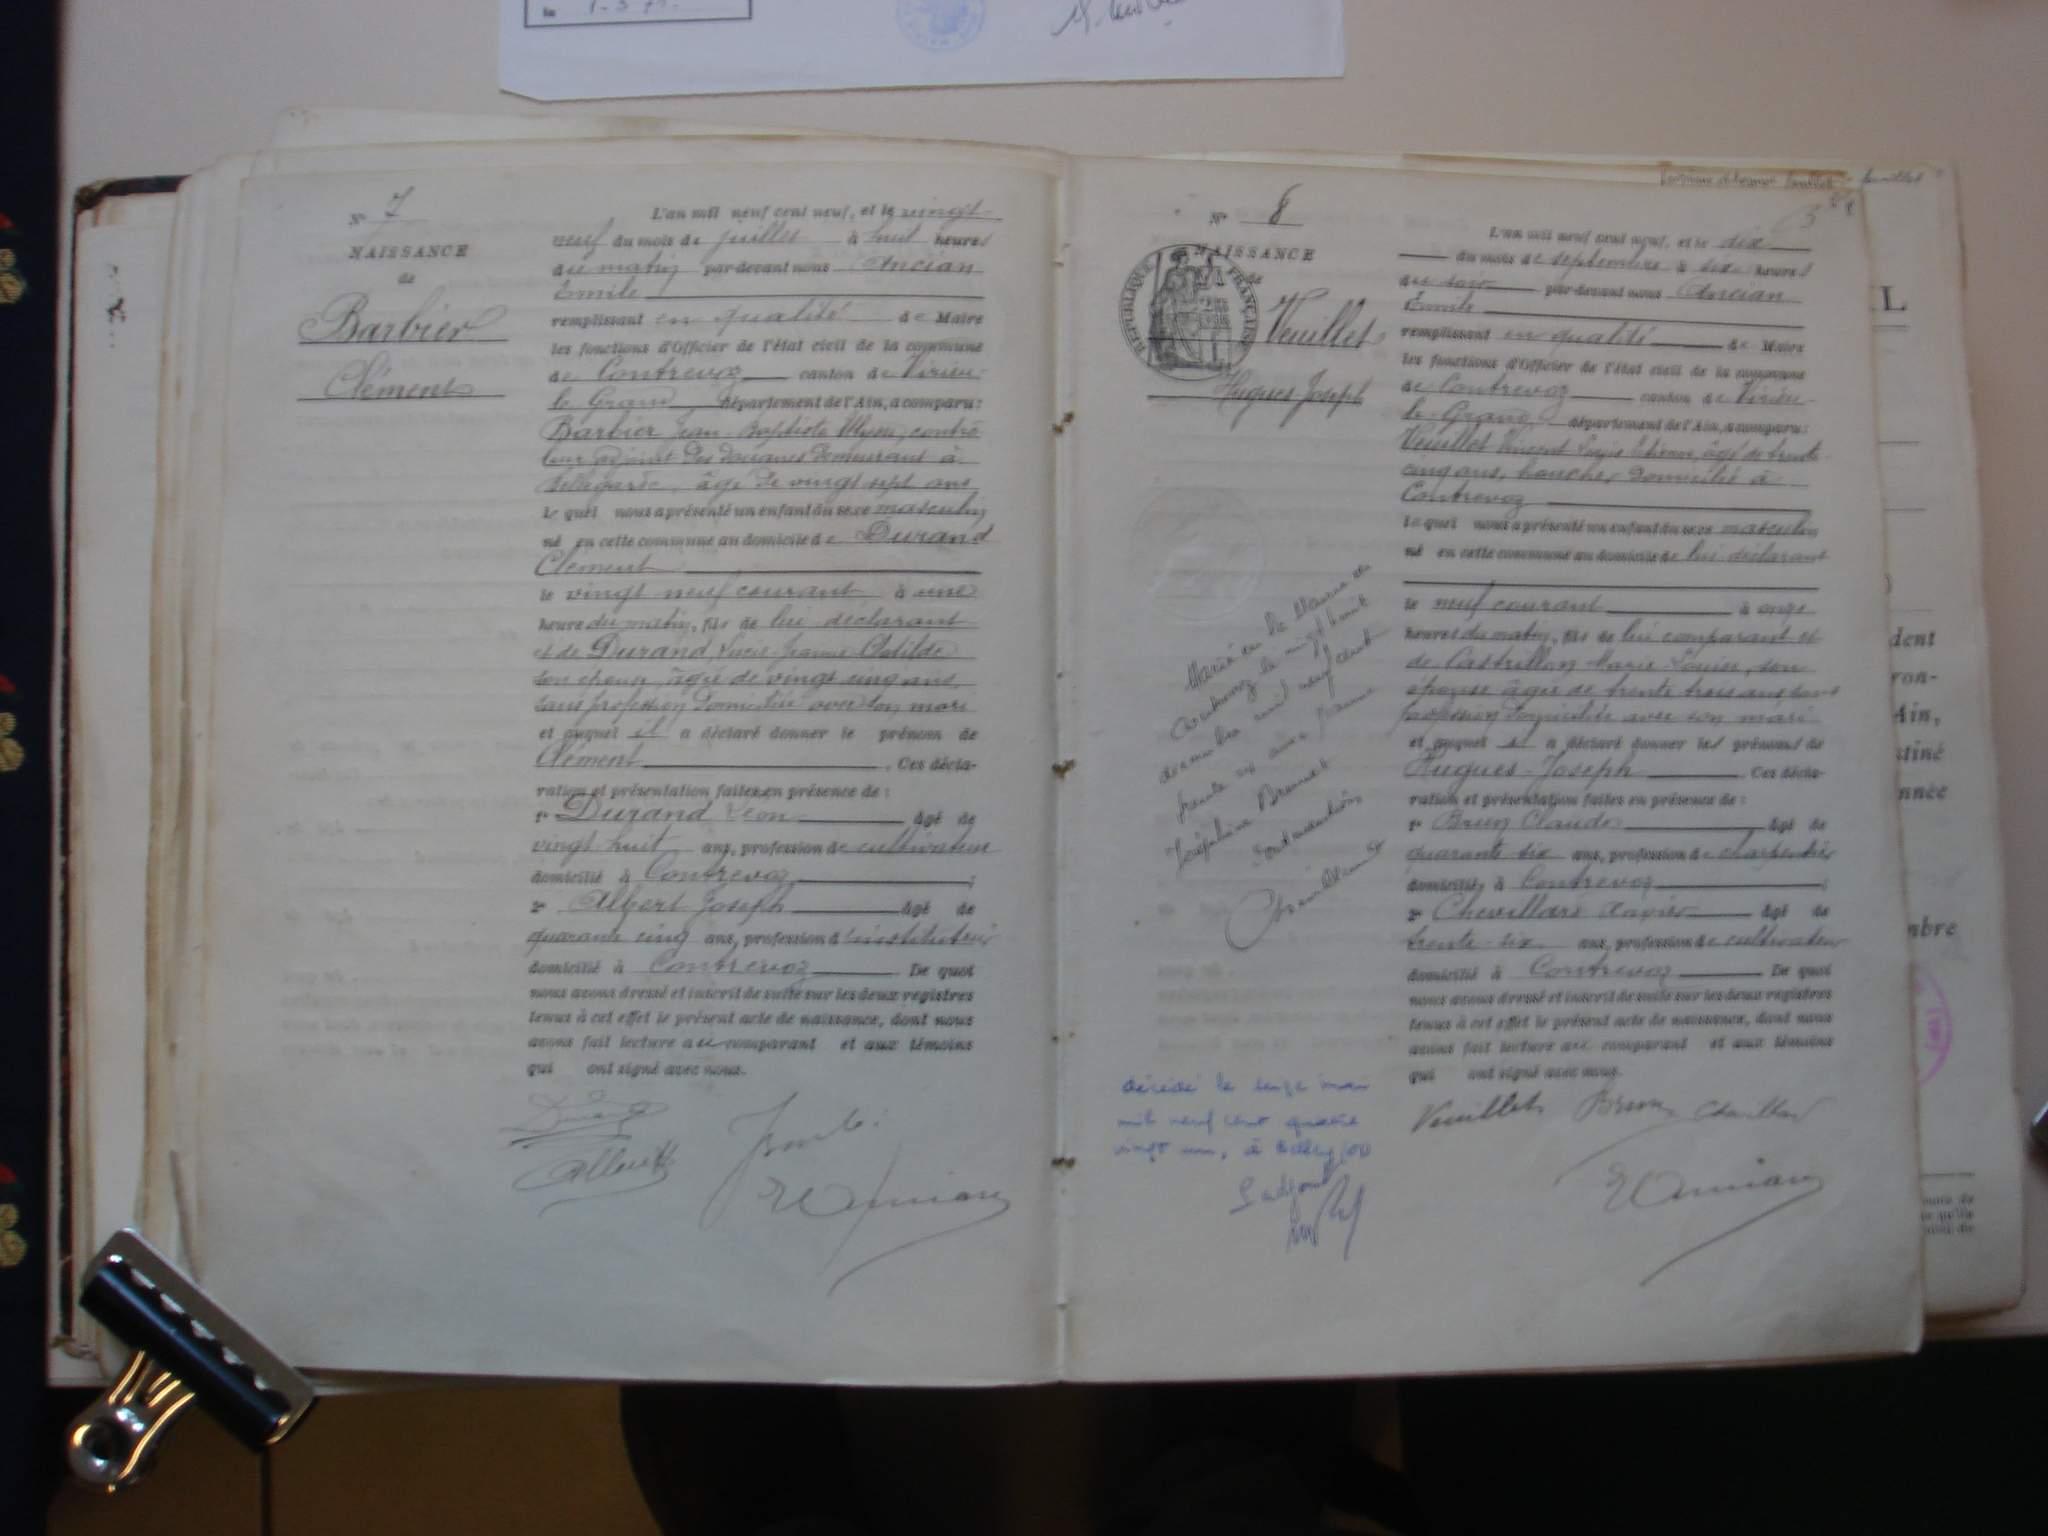 le 1-3-71-
N° 7
NAISSANCE
de
Barbier
Clément
L'an mil neuf cent neuf, et le vingt
neuf du mois de juillet à huit heures
du matin par-devant nous Ancian
Emile
remplissant en qualité de Maire
les fonctions d'Officier de l'état civil de la commune
de Contrevoz canton de Virieu-
le-Grand département de l'Ain, a comparu:
Barbier Jean-Baptiste Ulysse, contrô
leur adjoint des douanes demeurant à
Bellegarde, âgé de vingt sept ans
Le quel nous a présenté un enfant du sexe masculin
né en cette commune au domicile de Durand
Clément
le vingt neuf courant à une
heure du matin, fils de lui déclarant
et de Durand, Lucie-Jeanne Clotilde
son épouse, âgée de vingt cinq ans,
sans profession domiciliée avec son mari
et auquel il a déclaré donner le prénom de
Clément. Ces décla-
ration et présentation faites en présence de:
1° Durand Léon âgé de
vingt huit ans, profession de cultivateur
domicilié à Contrevoz;
2° Albert Joseph âgé de
quarante cinq ans, profession d'instituteur
domicilié à Contrevoz. De quoi
nous avons dressé et inscrit de suite sur les deux registres
tenus à cet effet le présent acte de naissance, dont nous
avons fait lecture au comparant et aux témoins
qui ont signé avec nous.
Durand
Albert
EAncian
N° 8
NAISSANCE
de
RÉPUBLIQUE FRANÇAISE
Veuillet
Hugues Joseph
L'an mil neuf cent neuf, et le dix
du mois de septembre à six heures
du soir par-devant nous Ancian
Emile
remplissant en qualité de Maire
les fonctions d'Officier de l'état civil de la commune
de Contrevoz canton de Virieu-
le-Grand département de l'Ain, a comparu:
Veuillet Vincent Louis, âgé de trente
cinq ans, boucher domicilié à
Contrevoz
Le quel nous a présenté un enfant du sexe masculin
né en cette commune au domicile de lui déclarant
le neuf courant à onze
heures du matin, fils de lui comparant et
de Castrillon Marie-Louise, son
épouse âgée de trente trois ans sans
profession domiciliée avec son mari
et auquel il a déclaré donner les prénoms de
Hugues-Joseph. Ces décla-
ration et présentation faites en présence de:
1° Brun Claude âgé de
quarante six ans, profession de charpentier
domicilié à Contrevoz;
2° Chevillard âgé de
trente-six ans, profession de cultivateur
domicilié à Contrevoz. De quoi
nous avons dressé et inscrit de suite sur les deux registres
tenus à cet effet le présent acte de naissance, dont nous
avons fait lecture au comparant et aux témoins
qui ont signé avec nous.
Veuillet Brun Chevillard
EAncian
Marié en la Mairie de
Contrevoz le vingt huit
décembre mil neuf cent
trente six avec Jeanne
Joséphine Brunet
Dont mention
décédé le seize mai
mil neuf cent quatre
vingt un, à Belley (01)
L'adjoint